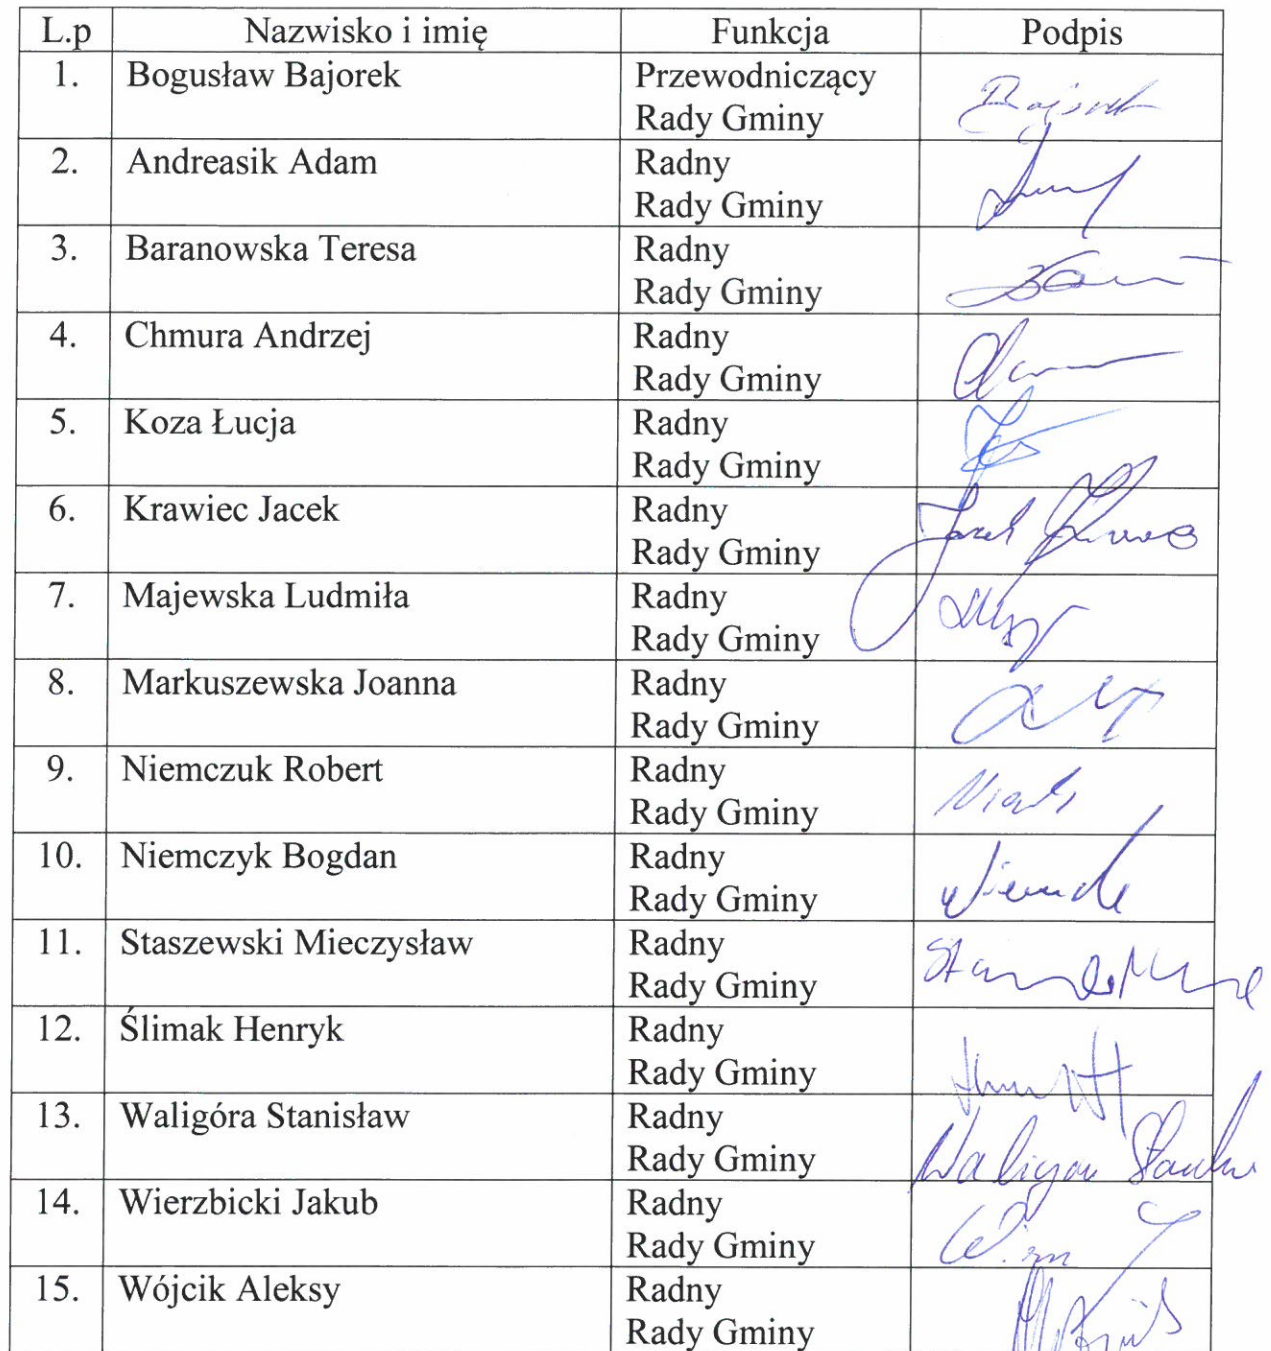 L.p Nazwisko i imię Funkcja Podpis
1. Bogusław Bajorek Przewodniczący
Rady Gminy
2. Andreasik Adam Radny
Rady Gminy
3. Baranowska Teresa Radny
Rady Gminy
4. Chmura Andrzej Radny
Rady Gminy
5. Koza Łucja Radny
Rady Gminy
6. Krawiec Jacek Radny
Rady Gminy
7. Majewska Ludmiła Radny
Rady Gminy
8. Markuszewska Joanna Radny
Rady Gminy
9. Niemczuk Robert Radny
Rady Gminy
10. Niemczyk Bogdan Radny
Rady Gminy
11. Staszewski Mieczysław Radny
Rady Gminy
12. Ślimak Henryk Radny
Rady Gminy
13. Waligóra Stanisław Radny
Rady Gminy
14. Wierzbicki Jakub Radny
Rady Gminy
15. Wójcik Aleksy Radny
Rady Gminy